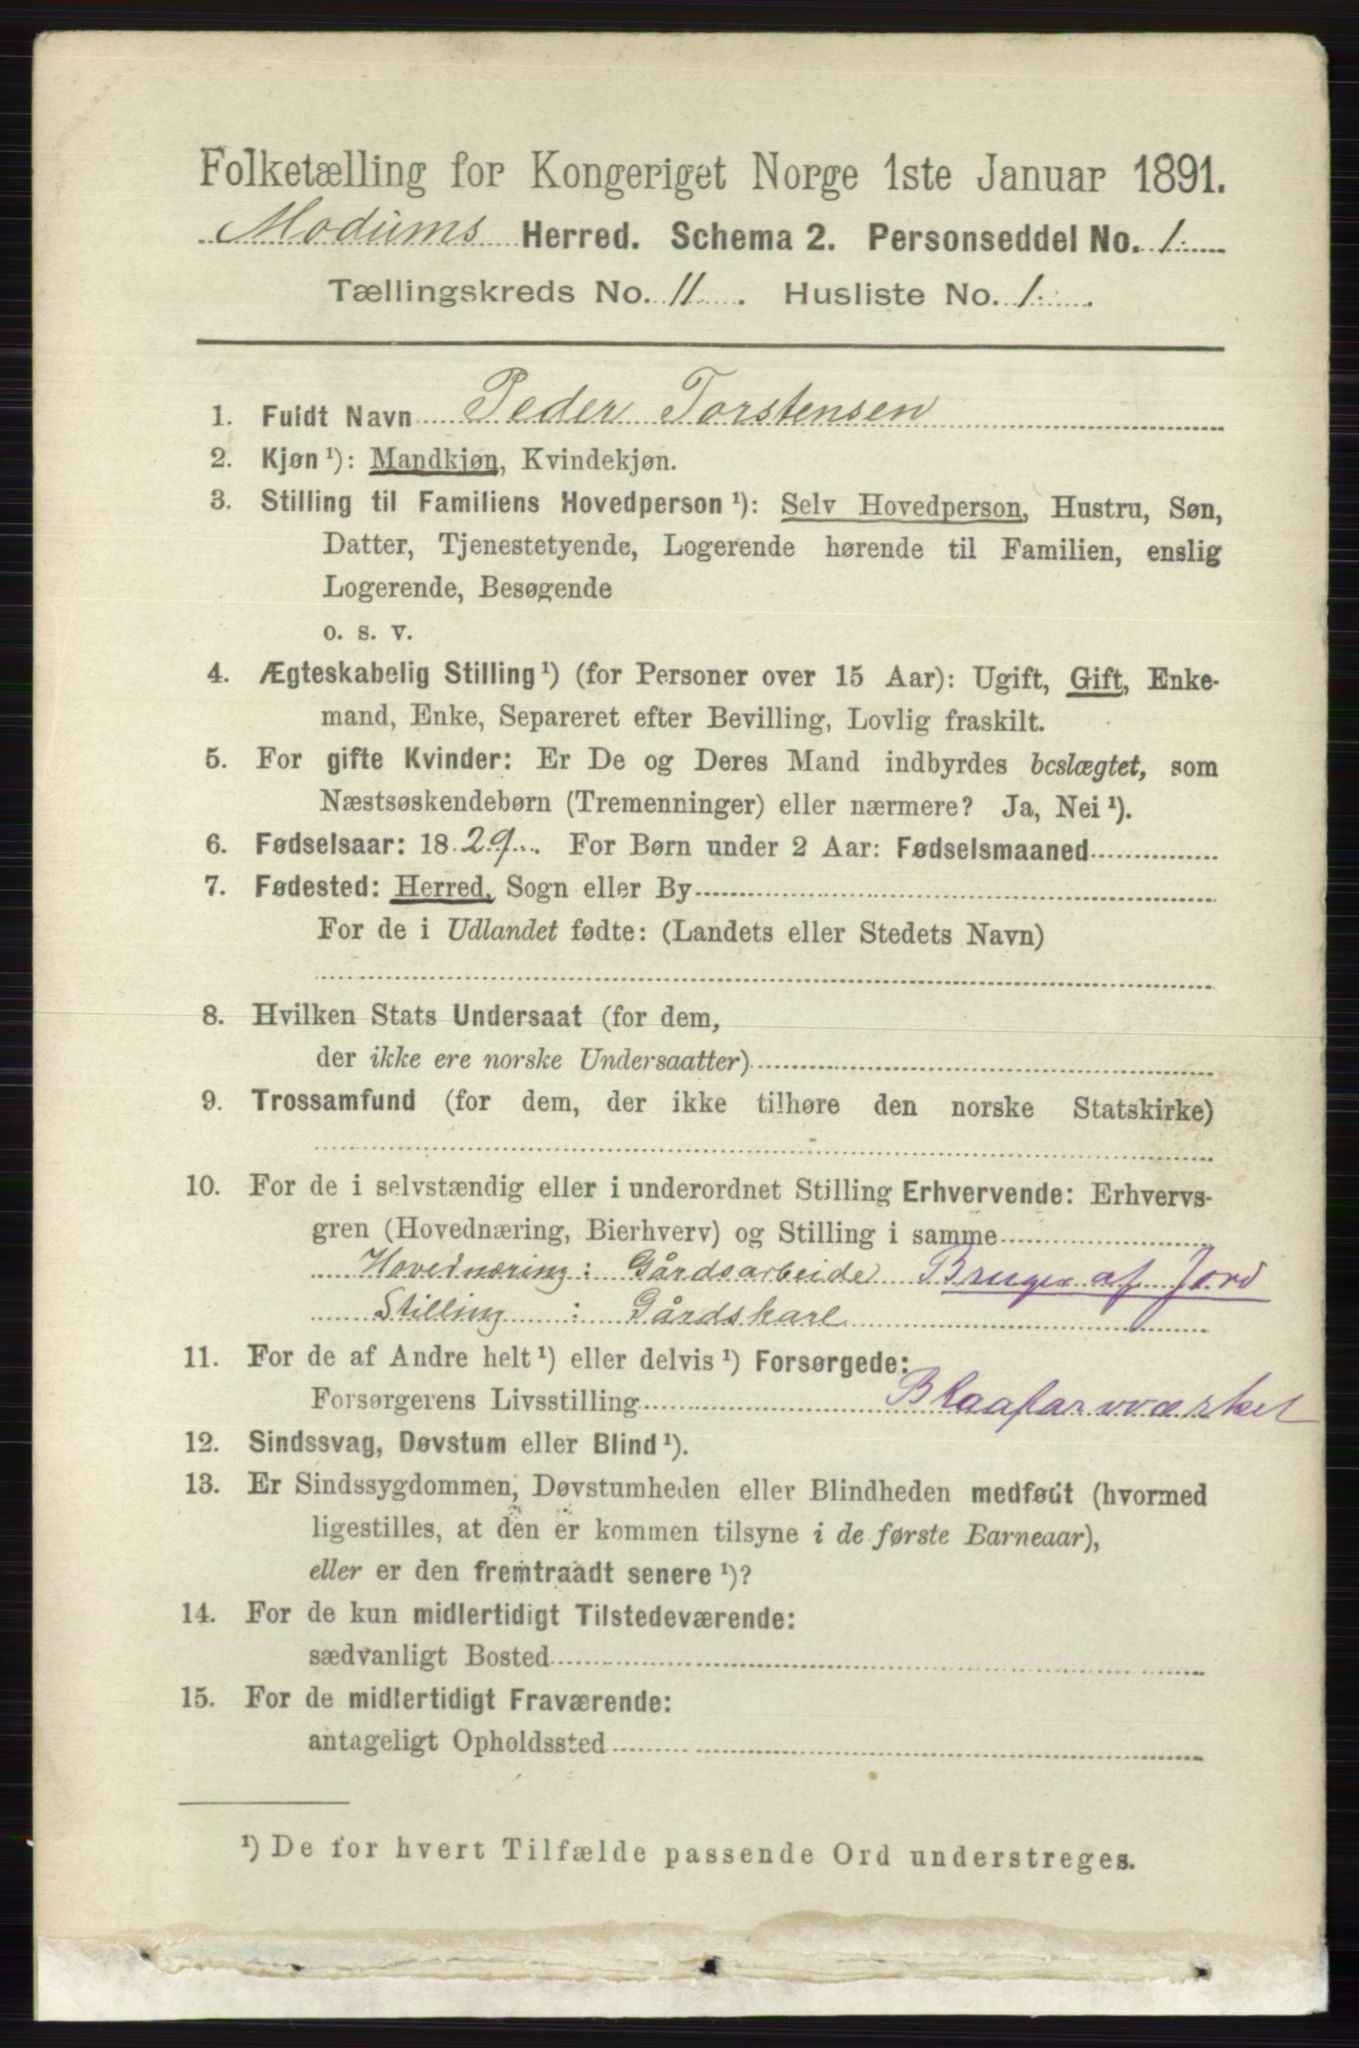 Folketælling for Kongeriget Norge 1ste Januar 1891.
Modums Herred. Schema 2. Personseddel No. 1.
Tællingskreds No. 11. Husliste No. 1.
1. Fuldt Navn Peder Torstensen
2. Kjøn ¹): Mandkjøn, Kvindekjøn.
3. Stilling til Familiens Hovedperson ¹): Selv Hovedperson, Hustru, Søn,
Datter, Tjenestetyende, Logerende hørende til Familien, enslig
Logerende, Besøgende
o. s. v.
4. Ægteskabelig Stilling ¹) (for Personer over 15 Aar): Ugift, Gift, Enke-
mand, Enke, Separeret efter Bevilling, Lovlig fraskilt.
5. For gifte Kvinder: Er De og Deres Mand indbyrdes beslægtet, som
Næstsøskendebørn (Tremenninger) eller nærmere? Ja, Nei ¹).
6. Fødselsaar: 1829. For Børn under 2 Aar: Fødselsmaaned
7. Fødested: Herred, Sogn eller By
For de i Udlandet fødte: (Landets eller Stedets Navn)
8. Hvilken Stats Undersaat (for dem,
der ikke ere norske Undersaatter)
9. Trossamfund (for dem, der ikke tilhøre den norske Statskirke)
10. For de i selvstændig eller i underordnet Stilling Erhvervende: Erhvervs-
gren (Hovednæring, Bierhverv) og Stilling i samme
Hovednæring: Gårdsarbeide Bruger af Jord
Stilling : Gårdskarl
11. For de af Andre helt ¹) eller delvis ¹) Forsørgede:
Forsørgerens Livsstilling Blaafarvværket
12. Sindssvag, Døvstum eller Blind ¹).
13. Er Sindssygdommen, Døvstumheden eller Blindheden medfødt (hvormed
ligestilles, at den er kommen tilsyne i de første Barneaar),
eller er den fremtraadt senere ¹)?
14. For de kun midlertidigt Tilstedeværende:
sædvanligt Bosted
15. For de midlertidigt Fraværende:
antageligt Opholdssted
¹) De for hvert Tilfælde passende Ord understreges.